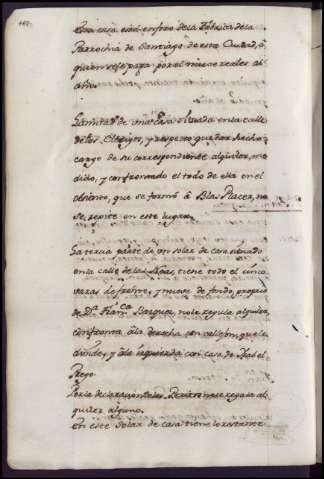 Esta casa está enfrente de la Iglesia de la
Parrochia de Santiago de esta Ciudad, á
quien se le paga por el nueve reales al
año.
La mitad de una casa situada en la calle
de los Clerigos, y respecto quedar hecho
cargo de su correspondiente alquiler, me
dida, y confrontado el todo de ella en el
asiento, que se formó á Blas Placer, no
se repite en este lugar.
La tercia parte de un solar de casa situado
en la calle de las tiene todo el cinco
varas de frente, y nueve de fondo, propio
de Dª Franca no le regula alquiler,
confronta á la derecha con callejon, que la
divide, y á la izquierda con casa de Isabel
Rego
Por la declaracion de los Peritos no se regula al
quiler alguno.
En este solar de casa tiene lo restante